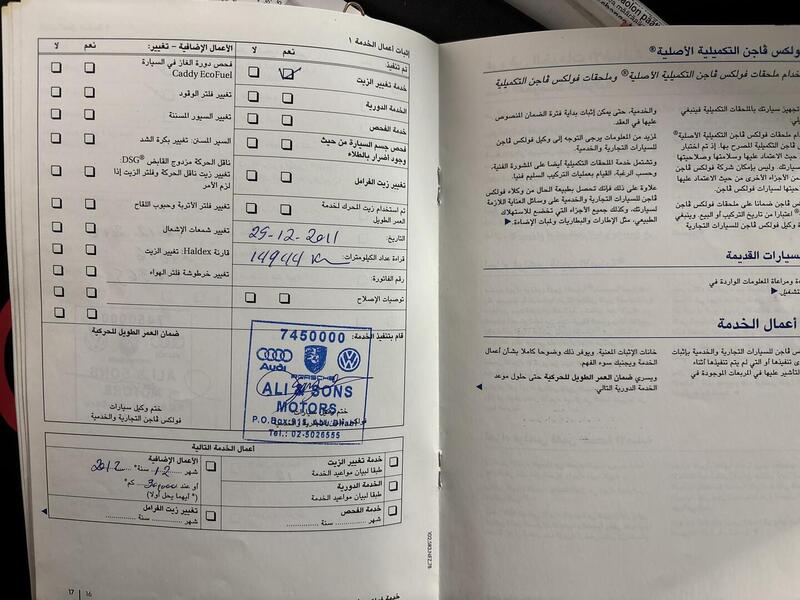 إثبات أعمال الخدمة ١
تم تنفيذ:
نعم
لا
خدمة تغيير الزيت
الخدمة الدورية
خدمة الفحص
فحص جسم السيارة من حيث
وجود أضرار بالطلاء
تغيير زيت الفرامل
تم استخدام زيت المحرك لخدمة
العمر الطويل
التاريخ:
25-12-2011
قراءة عداد الكيلومترات:
14944 Km
رقم الفاتورة:
توصيات الإصلاح
قام بتنفيذ الخدمة:
7450000
Audi
PORSCHE
ALI & SONS
MOTORS
P.O.Box 915, Abu Dhabi
Tel.: 02-5026555
ختم وكيل سيارات
الأعمال الإضافية – تغيير:
نعم
لا
فحص دورة الغاز في السيارة
Caddy EcoFuel
تغيير فلتر الوقود
تغيير السيور المسننة
السير المسنن: تغيير بكرة الشد
ناقل الحركة مزدوج القابض DSG®:
تغيير زيت ناقل الحركة وفلتر الزيت إذا
لزم الأمر
تغيير فلتر الأتربة وحبوب اللقاح
تغيير شمعات الإشعال
قارنة Haldex: تغيير الزيت
تغيير خرطوشة فلتر الهواء
ضمان العمر الطويل للحركية
ختم وكيل سيارات
فولكس ڤاجن التجارية والخدمية
أعمال الخدمة التالية
خدمة تغيير الزيت
طبقا لبيان مواعيد الخدمة
الخدمة الدورية
طبقا لبيان مواعيد الخدمة
خدمة الفحص
شهر ........ سنة ............
الأعمال الإضافية
شهر 12 سنة* 2012
أو عند 30,000 كم*
(* أيهما يحل أولا)
تغيير زيت الفرامل
شهر ........ سنة ............
17 | 16
ولكس ڤاجن التكميلية الأصلية®
خدام ملحقات فولكس ڤاجن التكميلية الأصلية® وملحقات فولكس ڤاجن التكميلية
تجهيز سيارتك بالملحقات التكميلية فينبغي
م ملحقات فولكس ڤاجن التكميلية الأصلية®
ڤاجن التكميلية المصرح بها. إذ تم اختبار
حيث الاعتماد عليها وسلامتها وصلاحيتها
لسيارتك. وليس بإمكان شركة فولكس ڤاجن
من الأجزاء الأخرى من حيث الاعتماد عليها
حيتها لسيارات فولكس ڤاجن.
كس ڤاجن ضمانا على ملحقات فولكس ڤاجن
® اعتبارا من تاريخ التركيب أو البيع. وينبغي
وكيل فولكس ڤاجن للسيارات التجارية
والخدمية، حتى يمكن إثبات بداية فترة الضمان المنصوص
عليها في العقد.
لمزيد من المعلومات يرجى التوجه إلى وكيل فولكس ڤاجن
للسيارات التجارية والخدمية.
وتشتمل خدمة الملحقات التكميلية أيضا على المشورة الفنية،
وحسب الرغبة، القيام بعمليات التركيب السليم فنيا.
علاوة على ذلك فإنك تحصل بطبيعة الحال من وكلاء فولكس
ڤاجن للسيارات التجارية والخدمية على وسائل العناية اللازمة
لسيارتك، وكذلك جميع الأجزاء التي تخضع للاستهلاك
الطبيعي، مثل الإطارات والبطاريات ولمبات الإضاءة.
لسيارات القديمة
ة ومراعاة المعلومات الواردة في
أعمال الخدمة
ڤاجن للسيارات التجارية والخدمية بإثبات
ى تنفيذها أو التي لم يتم تنفيذها أثناء
لتأشير عليها في المربعات الموجودة في
خانات الإثبات المعنية. ويوفر ذلك وضوحا كاملا بشأن أعمال
الخدمة ويجنبك سوء الفهم.
ويسري ضمان العمر الطويل للحركية حتى حلول موعد
الخدمة الدورية التالي.